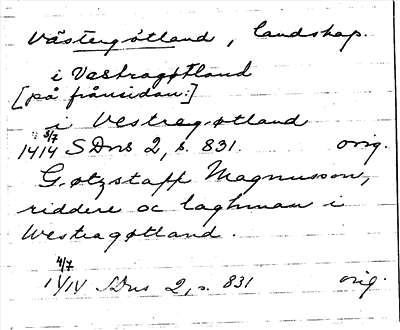 Västergötland, landskap.
i Vestragøtland
[på frånsidan:]
i Vestregøtland
3/7
1414 SDns 2, s. 831. orig.
Gøtzstaff Magnusson,
riddere oc laghman i
Westragøtland.
4/7
1414 SDns 2, s. 831 orig.